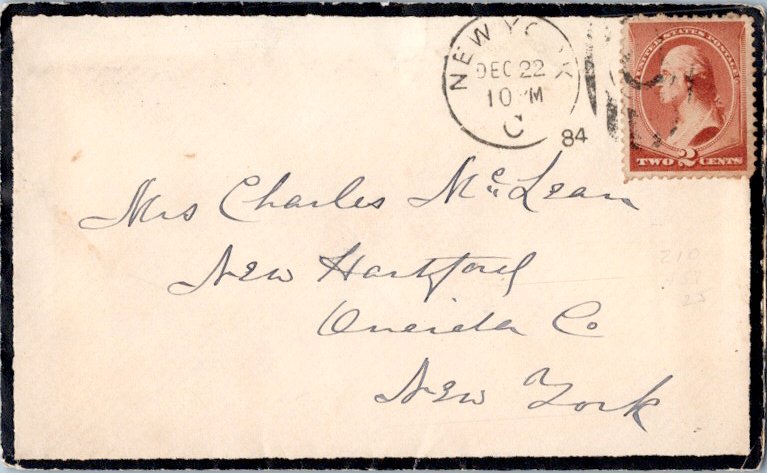 NEW YORK
DEC 22
10 PM
C
84
UNITED STATES POSTAGE
TWO 2 CENTS
Mrs Charles McLean
New Hartford
Oneida Co
New York
210
25